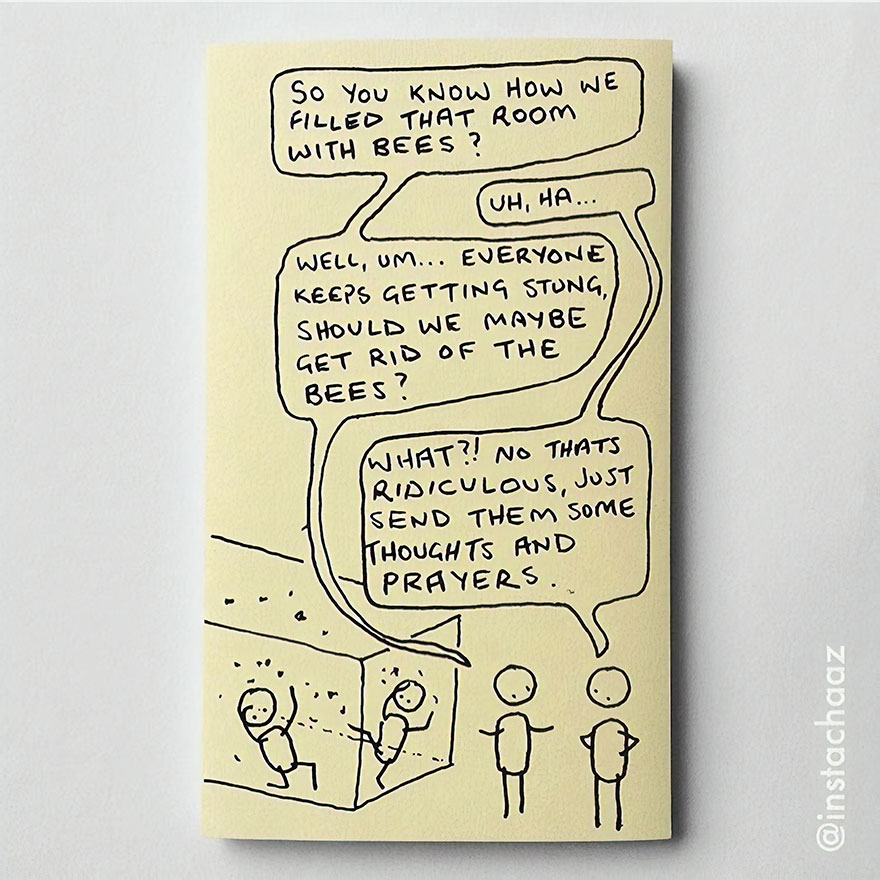 SO YOU KNOW HOW WE
FILLED THAT ROOM
WITH BEES?
UH, HA...
WELL, UM... EVERYONE
KEEPS GETTING STUNG,
SHOULD WE MAYBE
GET RID OF THE
BEES?
WHAT?! NO THATS
RIDICULOUS, JUST
SEND THEM SOME
THOUGHTS AND
PRAYERS.
@instachaaz